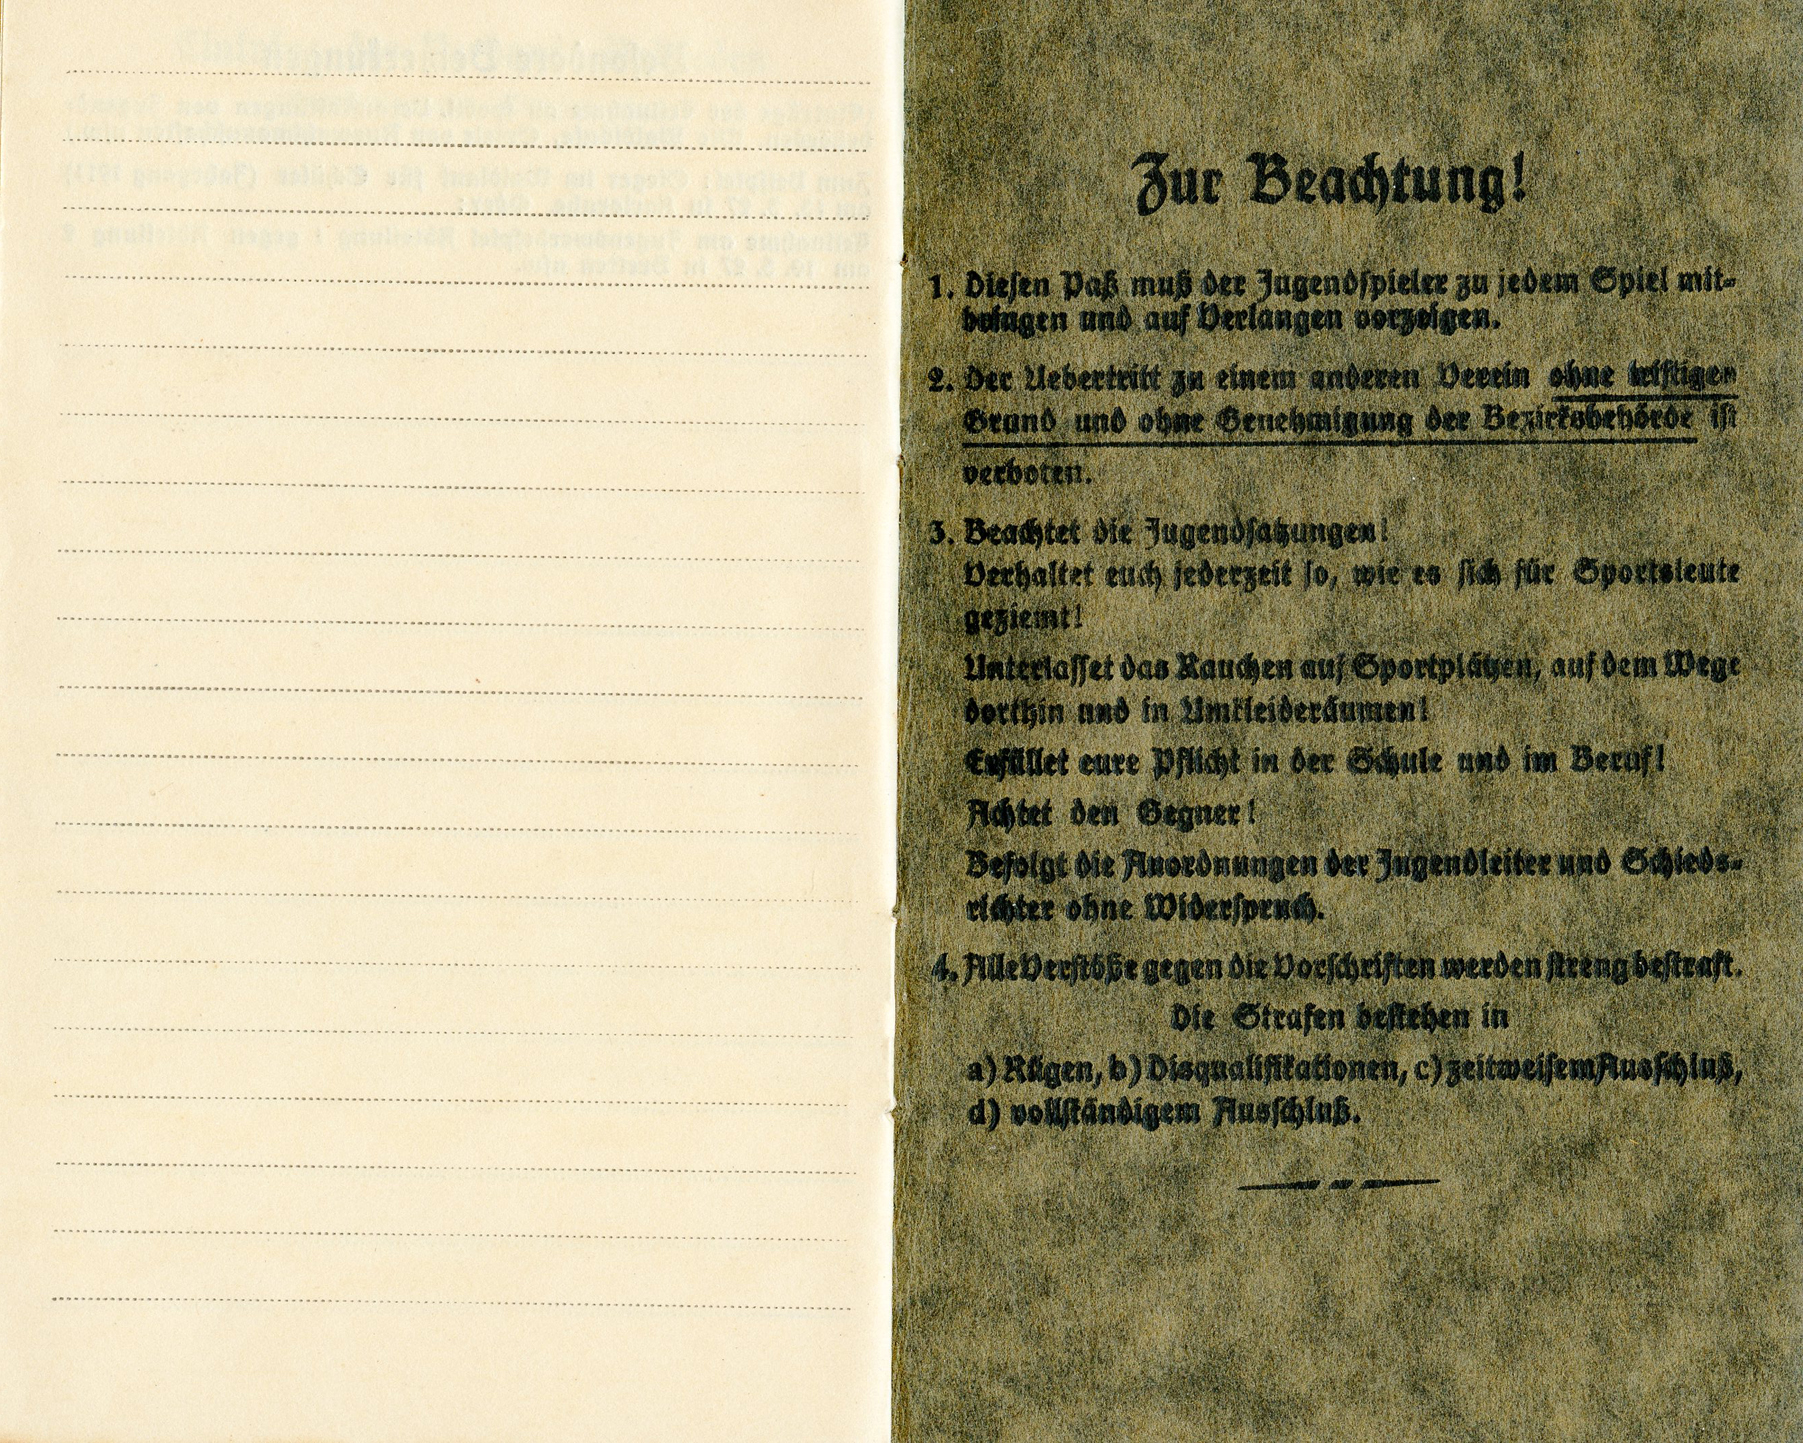 Zur Beachtung!
1. Diesen Paß muß der Jugendspieler zu jedem Spiel mit-
bringen und auf Verlangen vorzeigen.
2. Der Uebertritt zu einem anderen Verein ohne triftigen
Grund und ohne Genehmigung der Bezirksbehörde ist
verboten.
3. Beachtet die Jugendsatzungen!
Verhaltet euch jederzeit so, wie es sich für Sportsleute
geziemt!
Unterlasset das Rauchen auf Sportplätzen, auf dem Wege
dorthin und in Umkleideräumen!
Erfüllet eure Pflicht in der Schule und im Beruf!
Achtet den Gegner!
Befolgt die Anordnungen der Jugendleiter und Schieds-
richter ohne Widerspruch.
4. Alle Verstöße gegen die Vorschriften werden streng bestraft.
Die Strafen bestehen in
a) Rügen, b) Disqualifikationen, c) zeitweisem Ausschluß,
d) vollständigem Ausschluß.